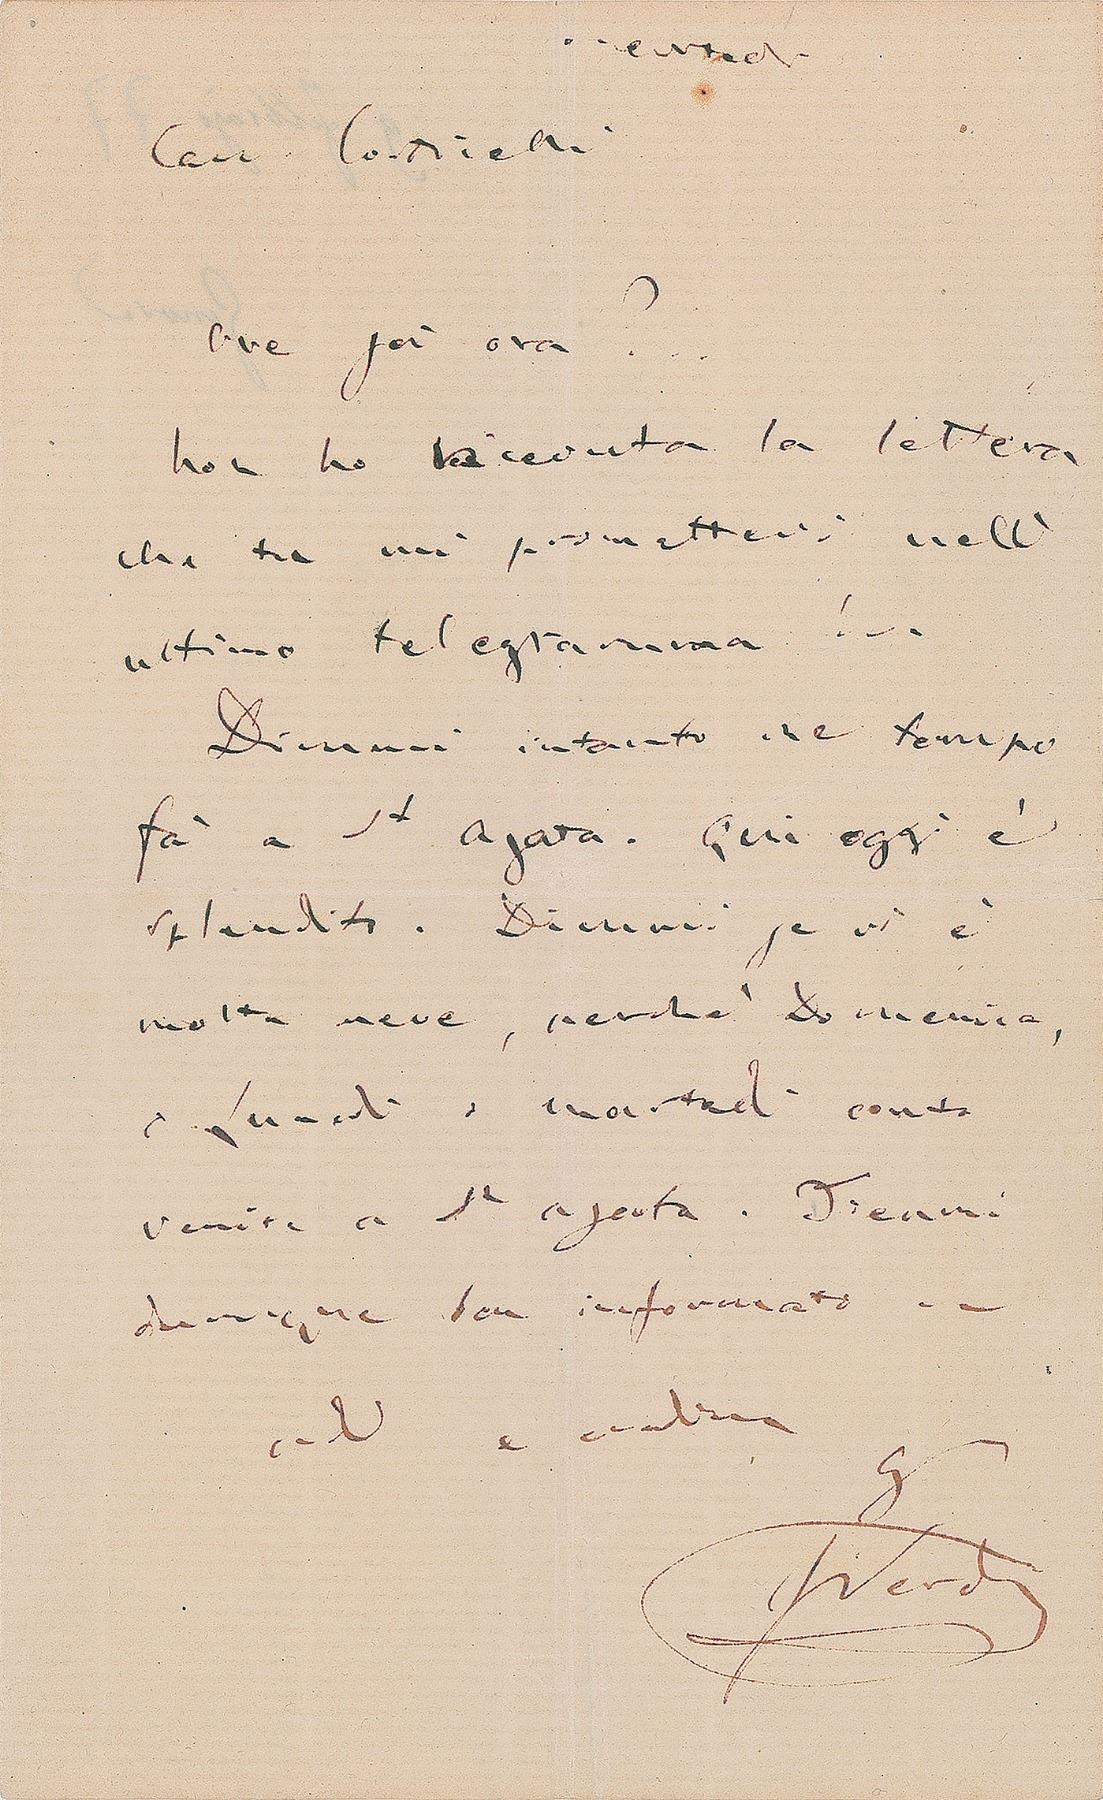 Caro Corticelli
Ove sei ora?...
Non ho ricevuta la lettera
che tu mi promettevi nell'
ultimo telegramma!...
Dimmi intanto che tempo
fà a St Agata. Qui oggi è
splendito. Dimmi se vi è
molta neve, perchè Domenica,
o Lunedì o martedì conto
venire a St Agata. Tienmi
dunque ben informato
e
G
Verdi